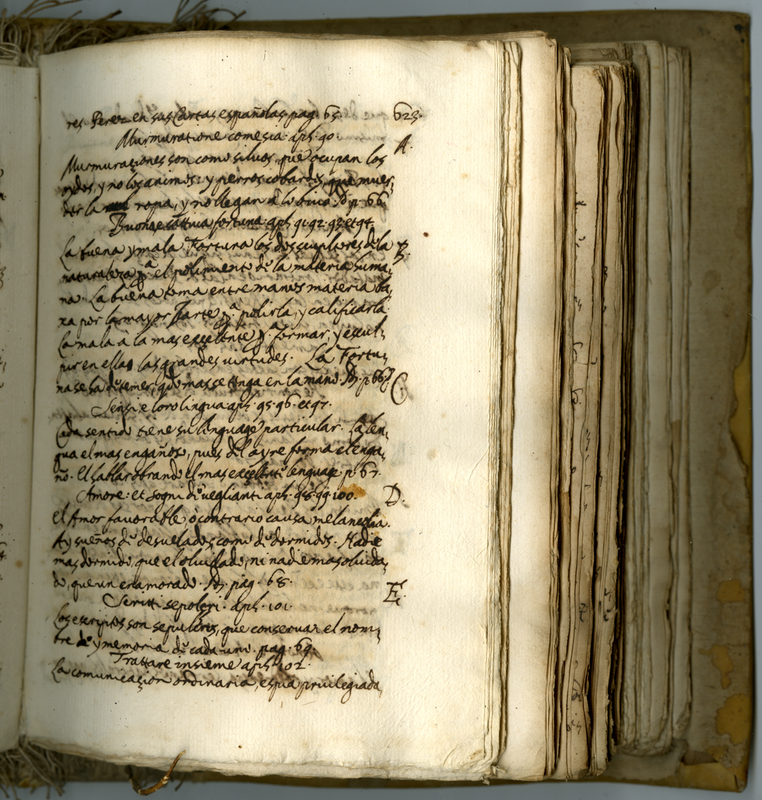 res. Perez en sus Cartas españolas, pag. 65. 625.
Murmuratione come sia. aph. 90.
A.
Murmurationes son como silvos, que ocupan los
oydos, y no los animos: y perros cobardes, que muer,
den la ropa, y no llegan a lo vivo. Id. p. 66.
Buona e cattiva fortuna. aph. 91. 92. 93. et 94.
La buena y mala Fortuna los dos esculptores de la B.
naturaleza pª el polimiento dela materia huma,
na. La buena toma entre manos materia ba,
xa por la mayor parte pª polirla, y calificarla.
La mala a la mas excelente pª formar, y escul,
pir en ellas las grandes virtudes. La Fortu,
na se ha de temer, quando mas se tenga en la mano. Id. p. 66. C.
Sensi e loro lingua. aph. 95. 96. et 97.
Cada sentido tiene su lenguage particular. La len,
gua el mas engañoso, pues del ayre forma el enga,
ño. El hablar obrando el mas excelente lenguage. p. 67.
Amore. et sogni de veglianti. aph. 98. 99. 100. D.
El Amor favorable o contrario causa melancolia.
Ay sueños de desvelados, como de dormidos. Nadie
mas dormido, que el olvidado, ni nadie mas olvida,
do, que un enamorado. Id. pag. 68.
E.
Scritti sepolcri. aph. 101.
Los escriptos son sepulcros, que conservan el nom,
bre y memoria de cada uno. pag. 69.
Trattare insieme aph. 102.
La comunicacion ordinaria, espia privilegiada,